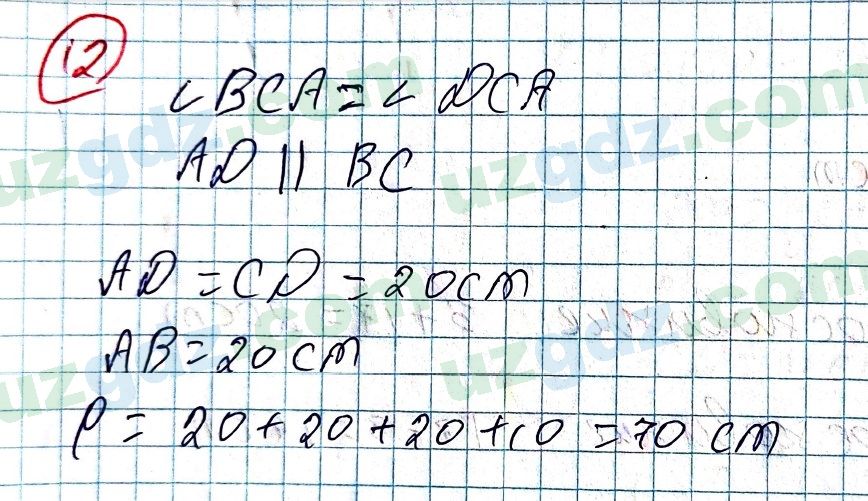 12
∠BCA = ∠DCA
AD || BC
AD = CD = 20 cm
AB = 20 cm
P = 20 + 20 + 20 + 10 = 70 cm
uzgdz.com